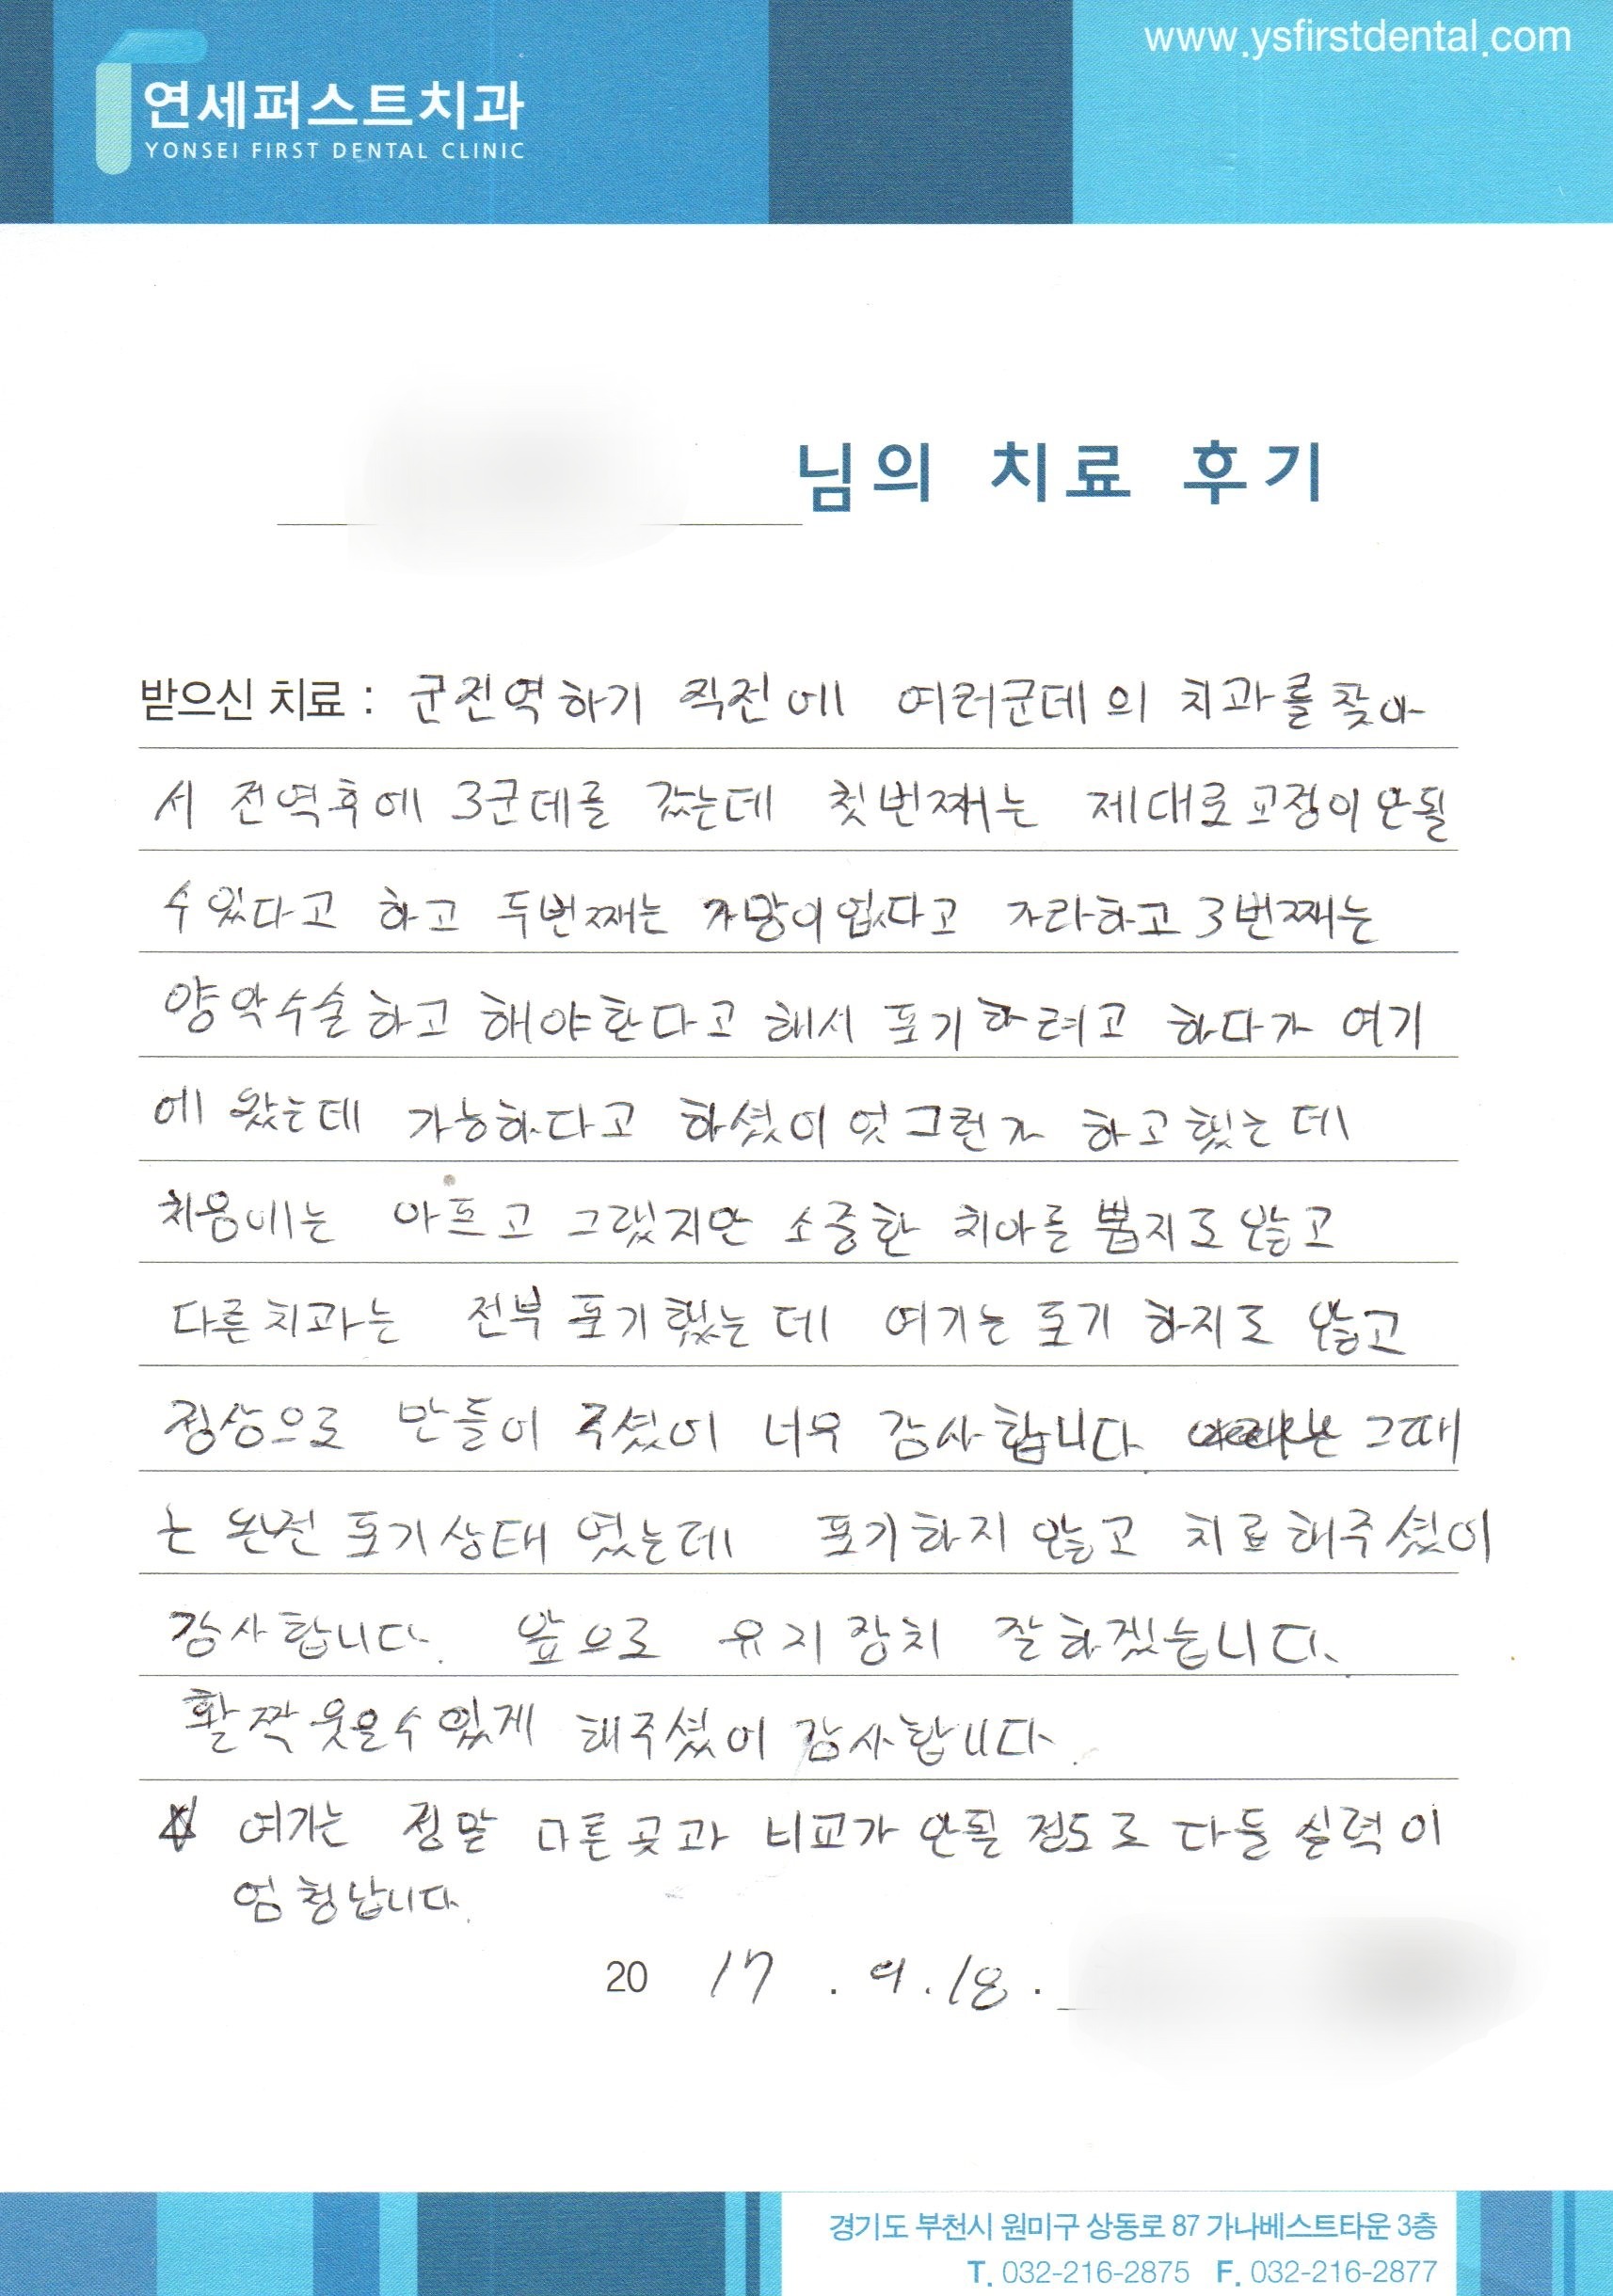 www.ysfirstdental.com
연세퍼스트치과
YONSEI FIRST DENTAL CLINIC
님의 치료 후기
받으신 치료 : 군전역하기 직전에 여러군데의 치과를 찾아
서 전역후에 3군데를 갔는데 첫번째는 제대로교정이안될
수있다고 하고 두번째는 가망이없다고 가라하고 3번째는
양악수술하고 해야한다고 해서 포기하려고 하다가 여기
에 왔는데 가능하다고 하셨이 엇그런가 하고했는데
처음에는 아프고 그랬지만 소중한 치아를 뽑지도않고
다른치과는 전부포기했는데 여기는포기 하지도 않고
정상으로 만들이 주셨이 너무 감사합니다. 그때
는 완전 포기상태 였는데 포기하지 않고 치료해주셨이
감사합니다. 앞으로 유지장치 잘하겠습니다.
활짝웃을수있게 해주셨이 감사합니다.
☆ 여기는 정말 다른곳과 비교가 안될 정도로 다들 실력이
엄청납니다.
20 17 . 9 . 18 .
경기도 부천시 원미구 상동로 87 가나베스트타운 3층
T. 032-216-2875 F. 032-216-2877